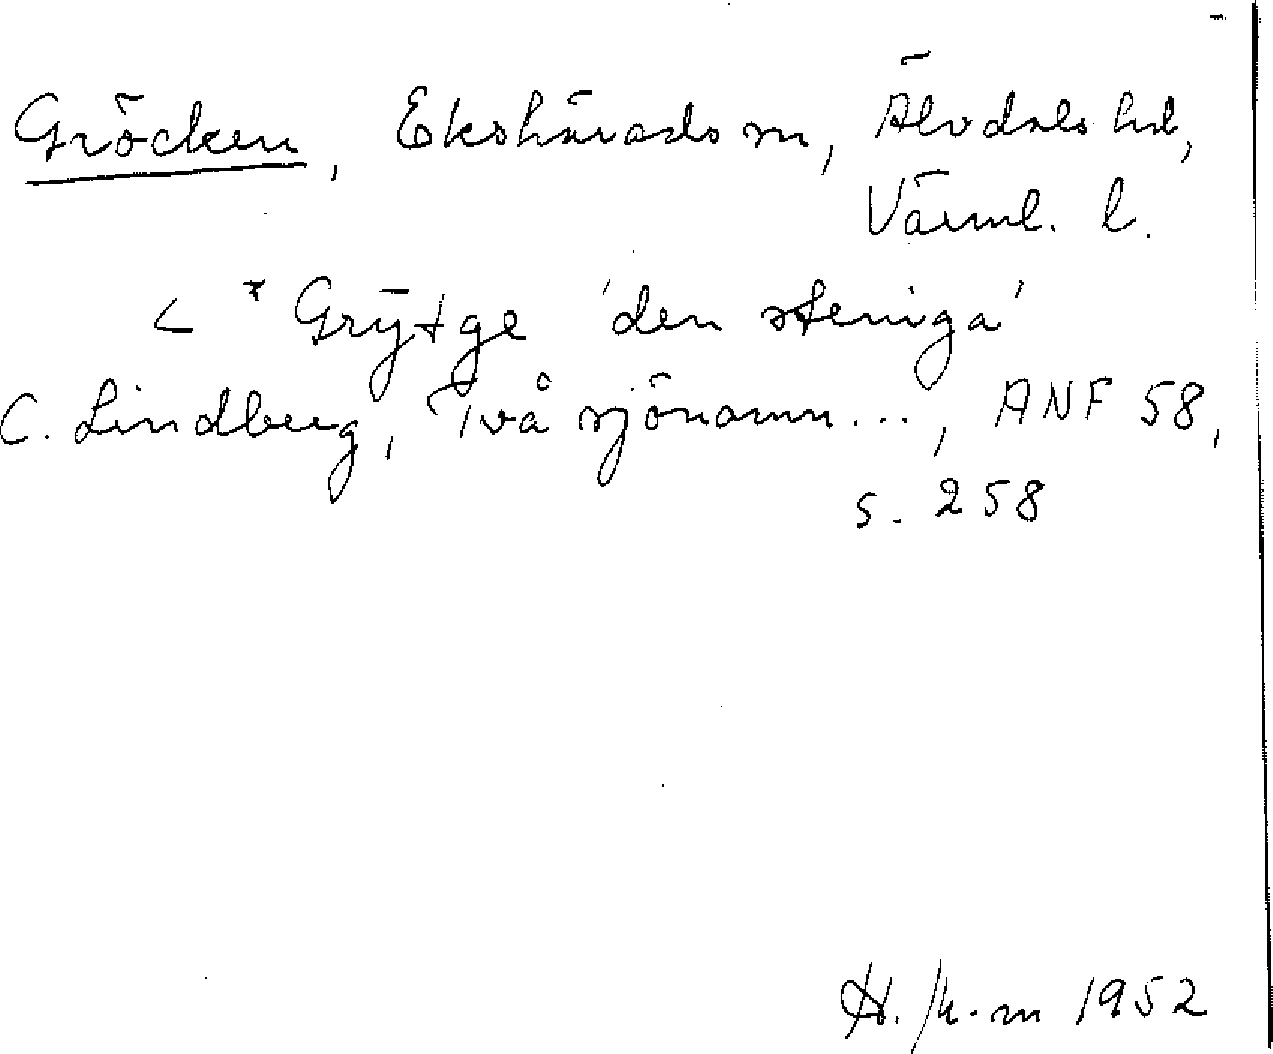 Gröcken, Ekshärads sn, Älvdals hd,
Värml. l.
< * Grȳtge 'den steniga'
C. Lindberg, Två sjönamn..., ANF 58,
s. 258
1952